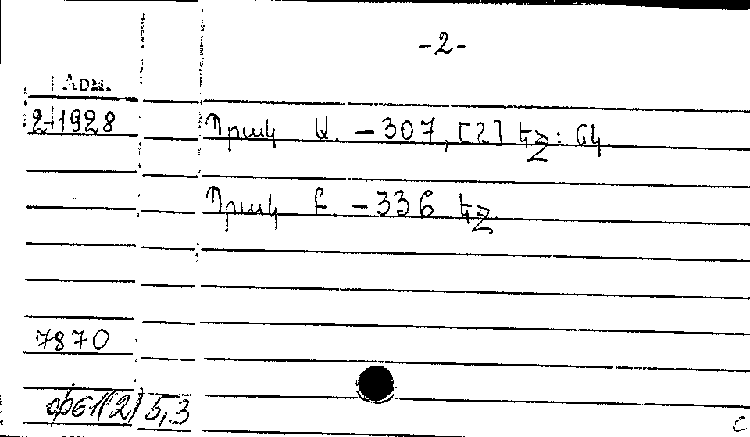 -2-
Арм.
2-1928
Պրակ Ա. – 307, [2] եջ: նկ
Պրակ Բ. – 336 եջ
7870
ф61(2) 5,3